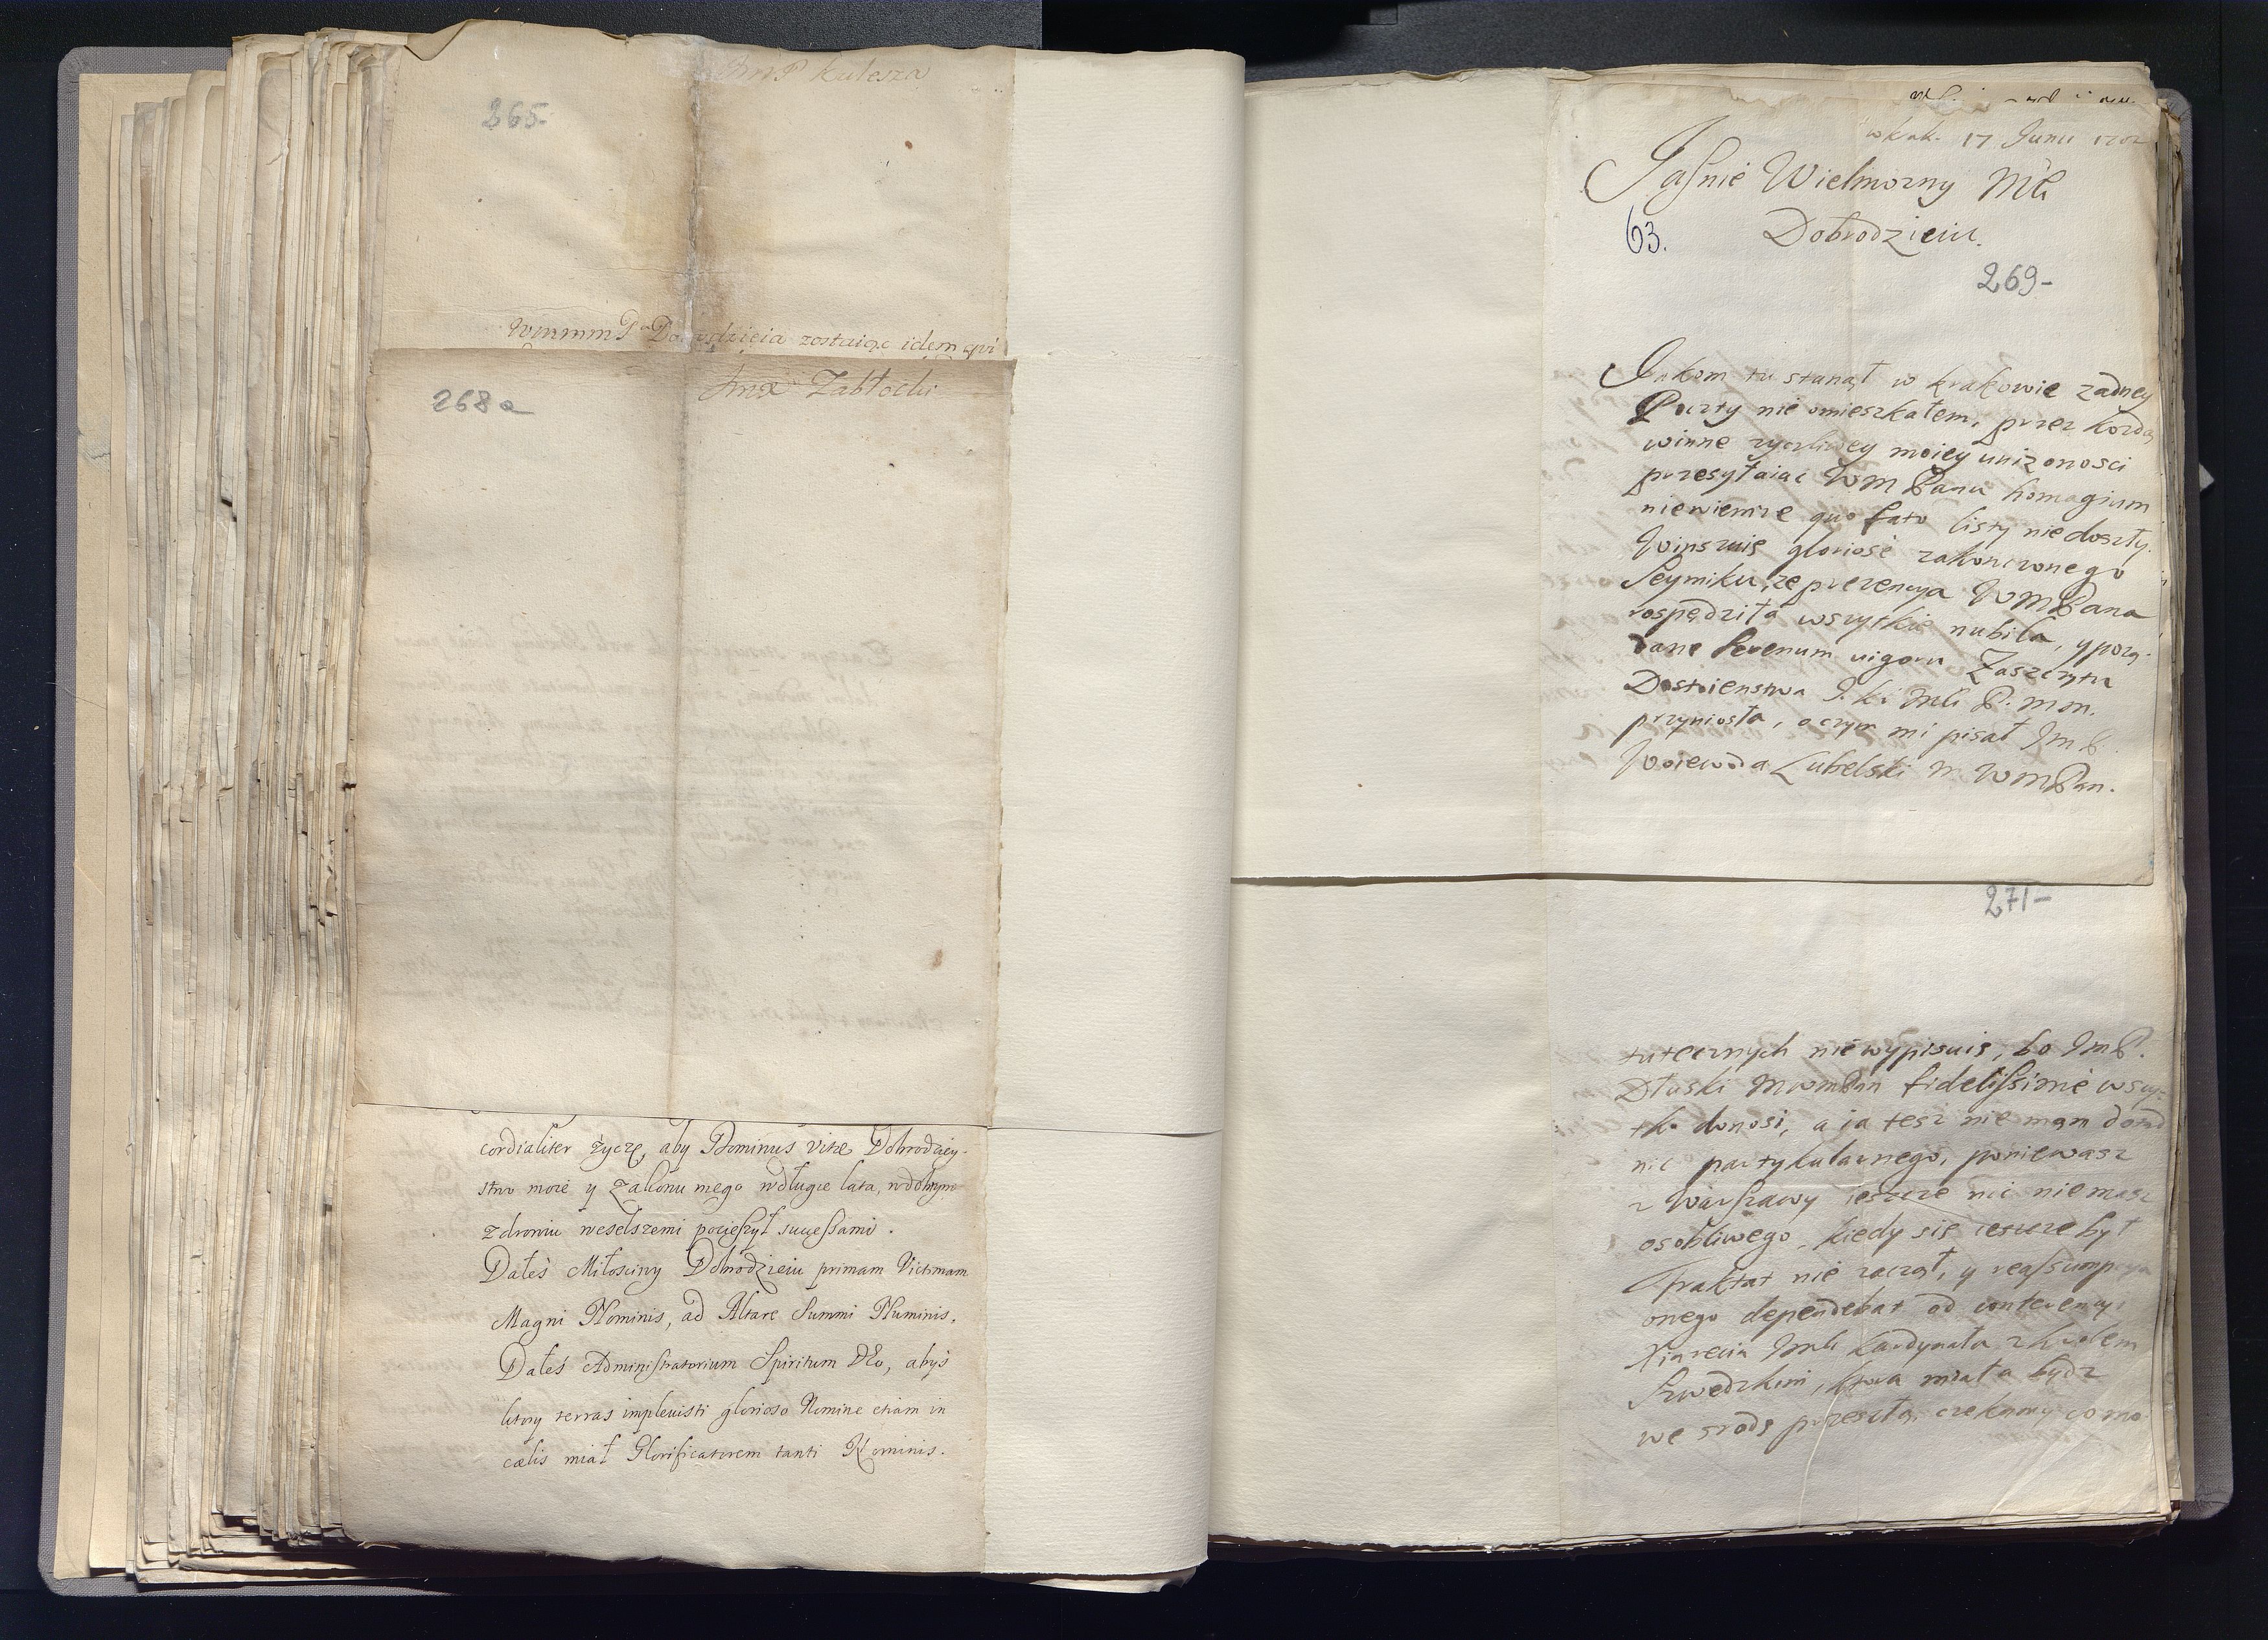 JmP Kulesza
265-
WmmmP Dobrodzieia zostaiąc idem qui
268a
Jmx Zabłocki
cordialiter życzę, aby Dominus vitæ Dobrodziey-
stwo moie y Zakonu mego w długie lata, w dobrym
zdrowiu weselszemi pocieszył successami.
Dałeś Miłosciwy Dobrodzieiu primam Victimam
Magni Nominis, ad Altare Summi Numinis.
Dałeś Administratorium Spiritum Deo, abyś
ktory terras implevisti glorioso Nomine etiam in
cælis miał Glorificatorem tanti Nominis.
w Krak. 17 Junii 1702
Jaśnie Wielmozny Mći
Dobrodzieiu.
63.
269-
Jakom tu stanął w krakowie zadney
Poczty nie omieszkałem, przez kozdą
winne zyczliwey moiey unizonosci
przesyłaiąc WMPanu homagium
niewiemze quo fato listy niedoszły.
Winszuię gloriose zakonczonego
Seymiku, ze prezencya WMPana
rospędziła wszytkie nubila, y porzą-
dane Serenum vigoru Zaszczytu
Dostoienstwa J. Ki Mći P. mon.
przyniosła, o czym mi pisał JmP.
Woiewoda Lubelski M WMPan.
271-
tutecznych nie wypisuię, bo JmP.
Dłuski MWMPan fidelissime wszy-
tko donosi, a ia tesz nie mam dotąd
nic partykularnego, poniewasz
z Warszawy ieszcze nic niemasz
osobliwego, kiedy się ieszcze był
Traktat nie zaczął, y reassumpcya
onego dependebat od conferencyi
Xiązecia Jmći Kardynała z krolem
Szwedzkim, ktora miała bydz
we srodę przeszłą, czekamy co mo-